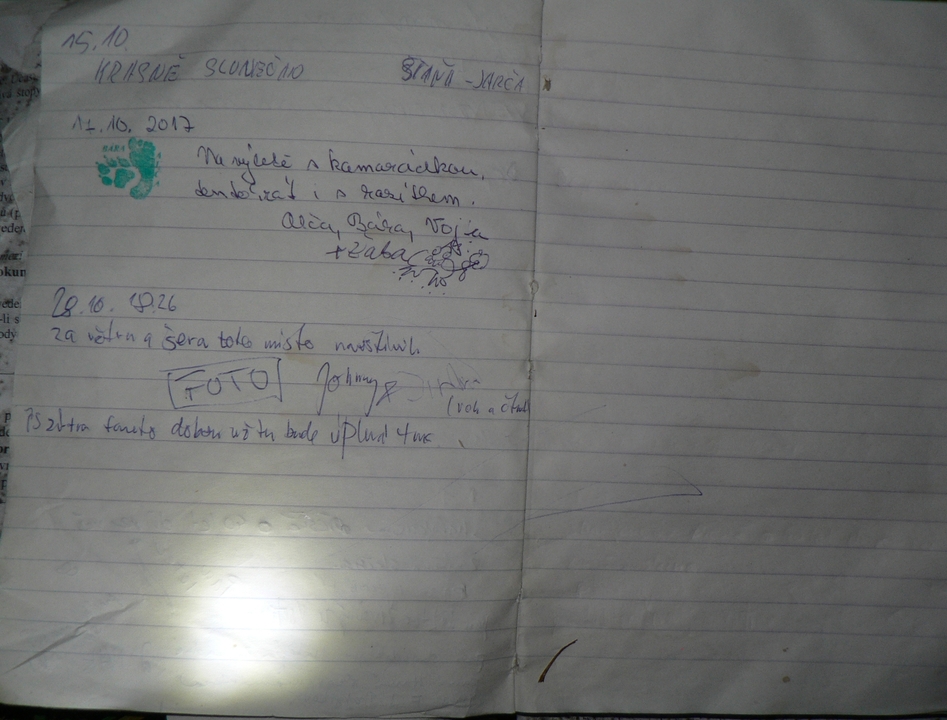 15.10.
KRÁSNĚ SLUNEČNO STÁŇA - JARČA
11.10. 2017
Na výletě s kamarádkou,
tentokrát i s razítkem.
Olča, Bára, Vojta
+ žába
28.10. 18:26
za větru a šera toto místo navštívil.
FOTO Johnny &
PS zítra touto dobou už tu bude úplná tma